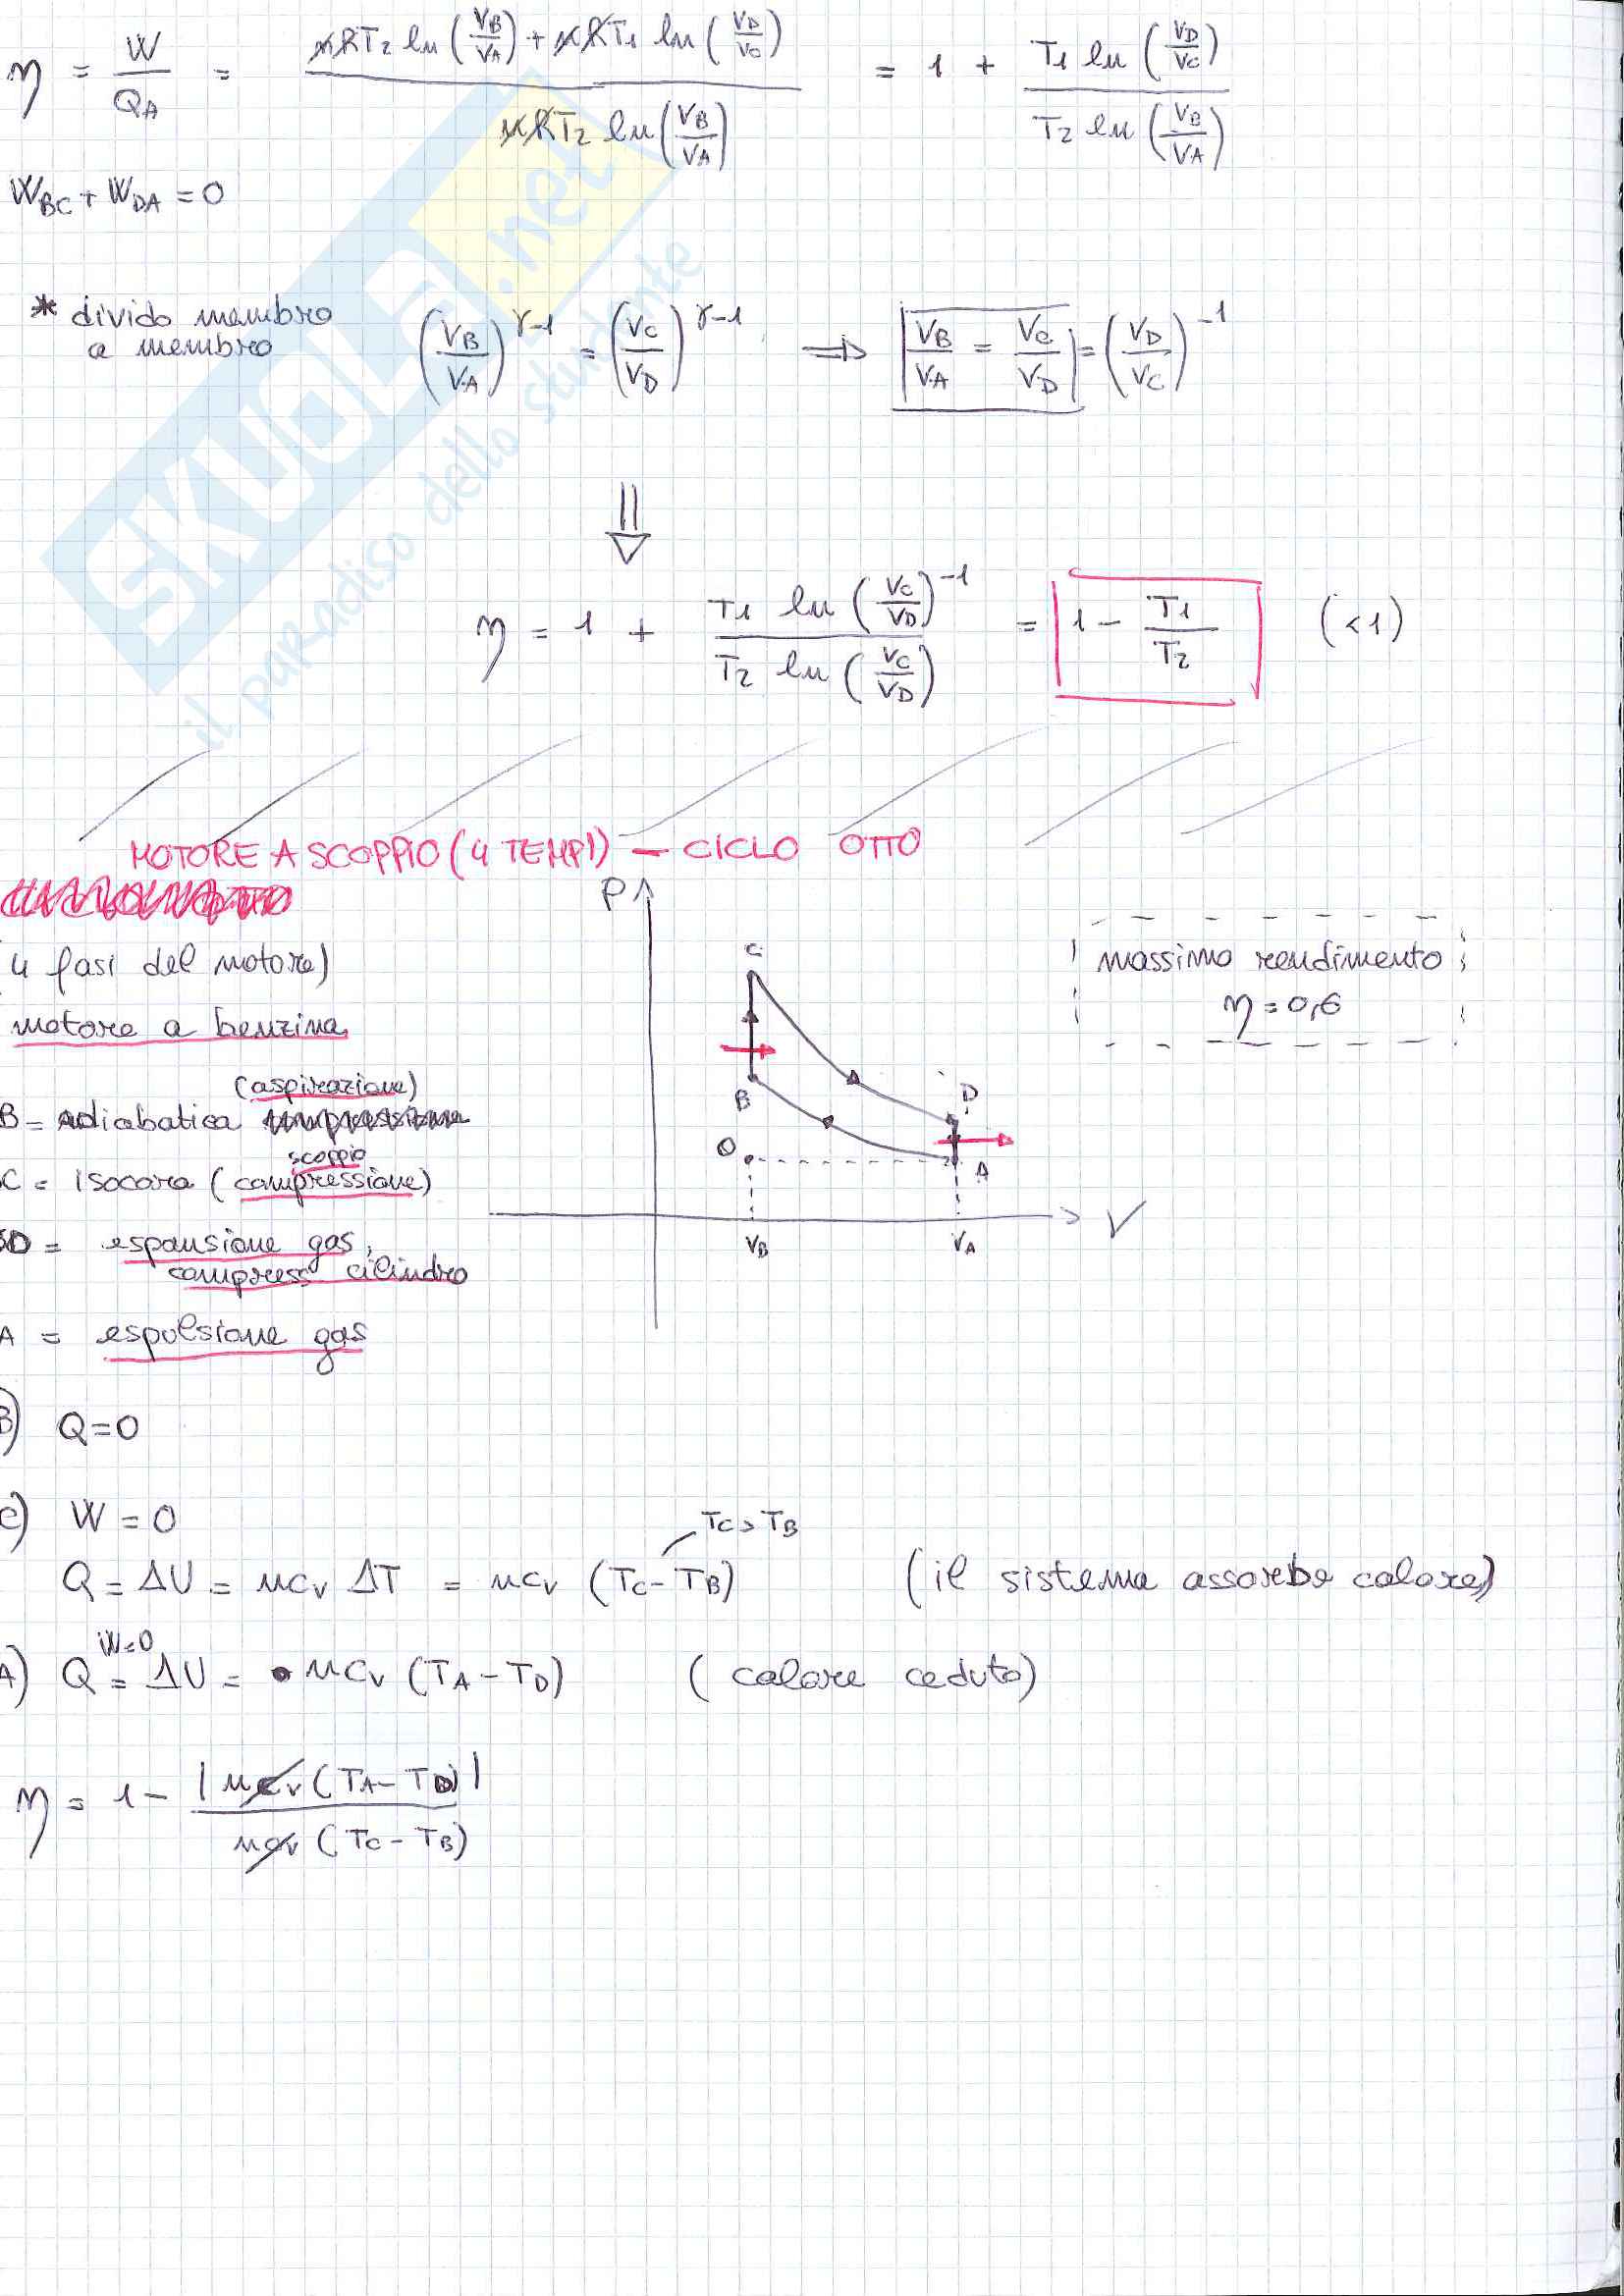 η = W/QA = (nRT2 ln(VB/VA) + nRT1 ln(VD/VC)) / (nRT2 ln(VB/VA)) = 1 + (T1 ln(VD/VC)) / (T2 ln(VB/VA))
WBC + WDA = 0
* divido membro
a membro
(VB/VA)^γ-1 = (VC/VD)^γ-1 ⇒ VB/VA = VC/VD = (VD/VC)^-1
⇓
η = 1 + (T1 ln(VC/VD)^-1) / (T2 ln(VC/VD)) = 1 - T1/T2 (<1)
SKUOLA.net
il paradiso dello studente
MOTORE A SCOPPIO (4 TEMPI) – CICLO OTTO
4 fasi del motore)
motore a benzina
(aspirazione)
B = adiabatica
scoppio
C = isocora (compressione)
D = espansione gas,
compress cilindro
A = espulsione gas
P
C
B
O
D
A
VB
VA
V
massimo rendimento
η = 0,6
B) Q=0
C) W = 0
TC > TB
Q = ΔU = ncv ΔT = ncv (TC - TB) (il sistema assorbe calore)
W=0
A) Q = ΔU = ncv (TA - TD) (calore ceduto)
η = 1 - |ncv (TA - TD)| / ncv (TC - TB)